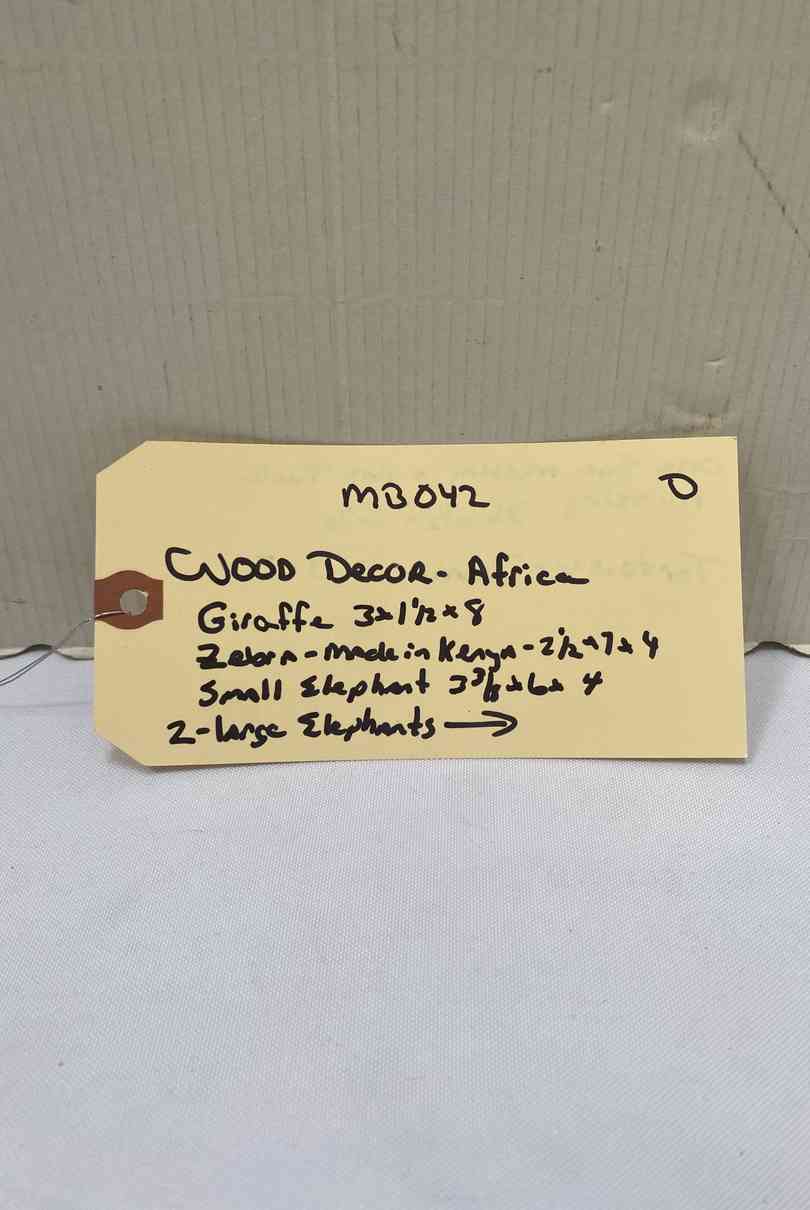 MB042 O
WOOD DECOR - Africa
Giraffe 3x1 1/2 x 8
Zebra - made in Kenya - 2 1/2 x 7 x 4
Small Elephant 3 3/8 x 6 x 4
2 - large Elephants →